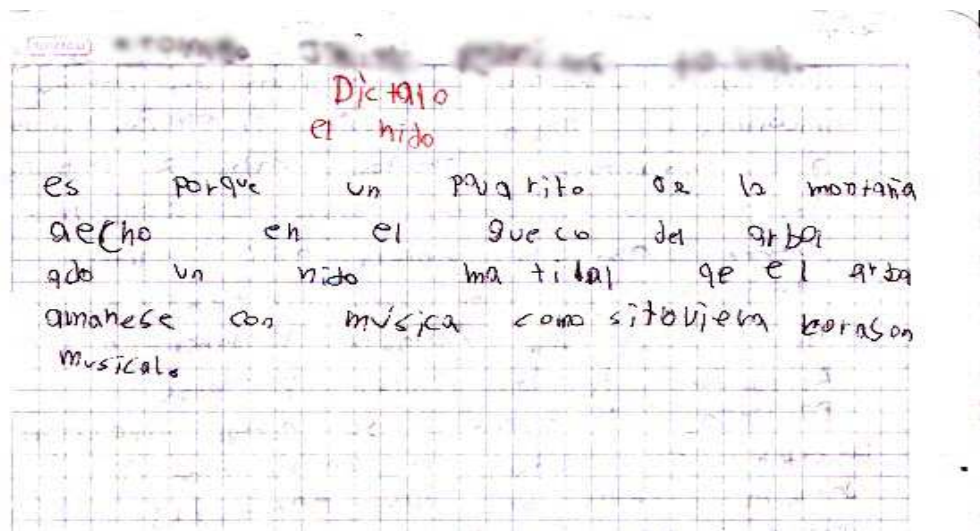 Dictado
el nido
es porque un pajarito de la montaña
aecho en el gueco del arbol
ado un nido matidal qe el arbol
amanese con música como situviera corason
musical.